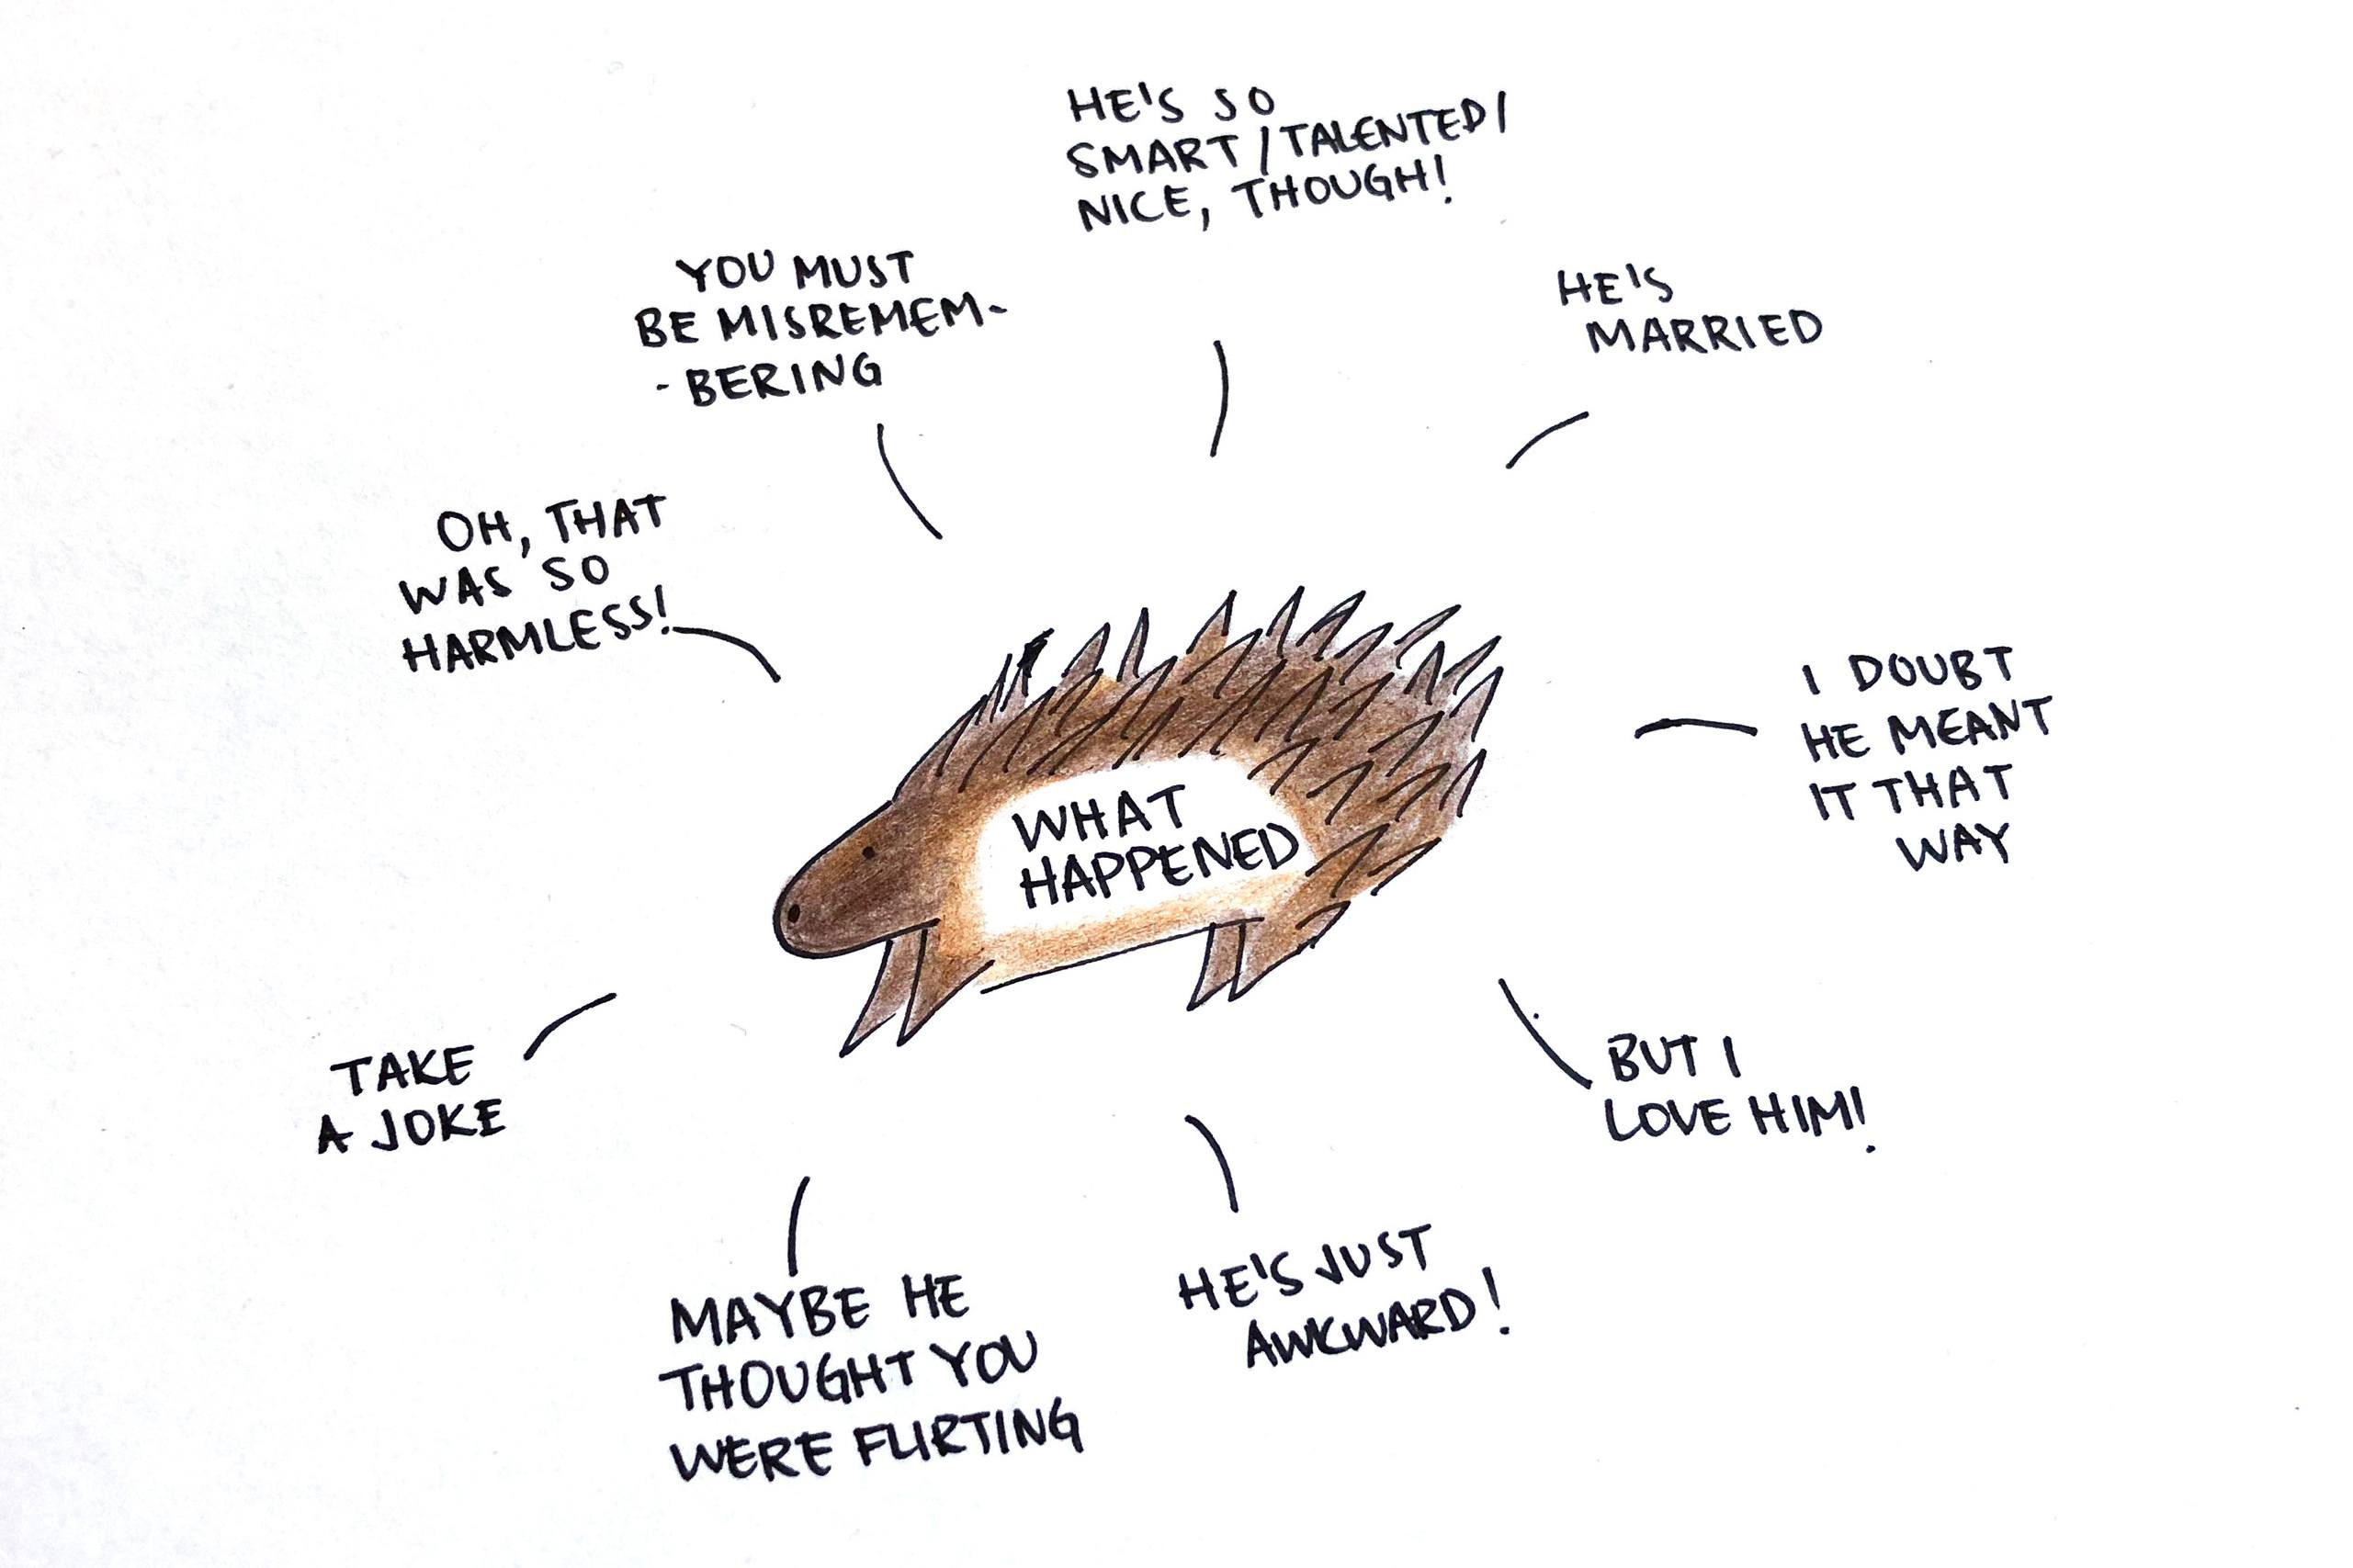 HE'S SO
SMART/TALENTED/
NICE, THOUGH!
YOU MUST
BE MISREMEM-
-BERING
HE'S
MARRIED
OH, THAT
WAS SO
HARMLESS!
I DOUBT
HE MEANT
IT THAT
WAY
WHAT
HAPPENED
TAKE
A JOKE
BUT I
LOVE HIM!
MAYBE HE
THOUGHT YOU
WERE FLIRTING
HE'S JUST
AWKWARD!